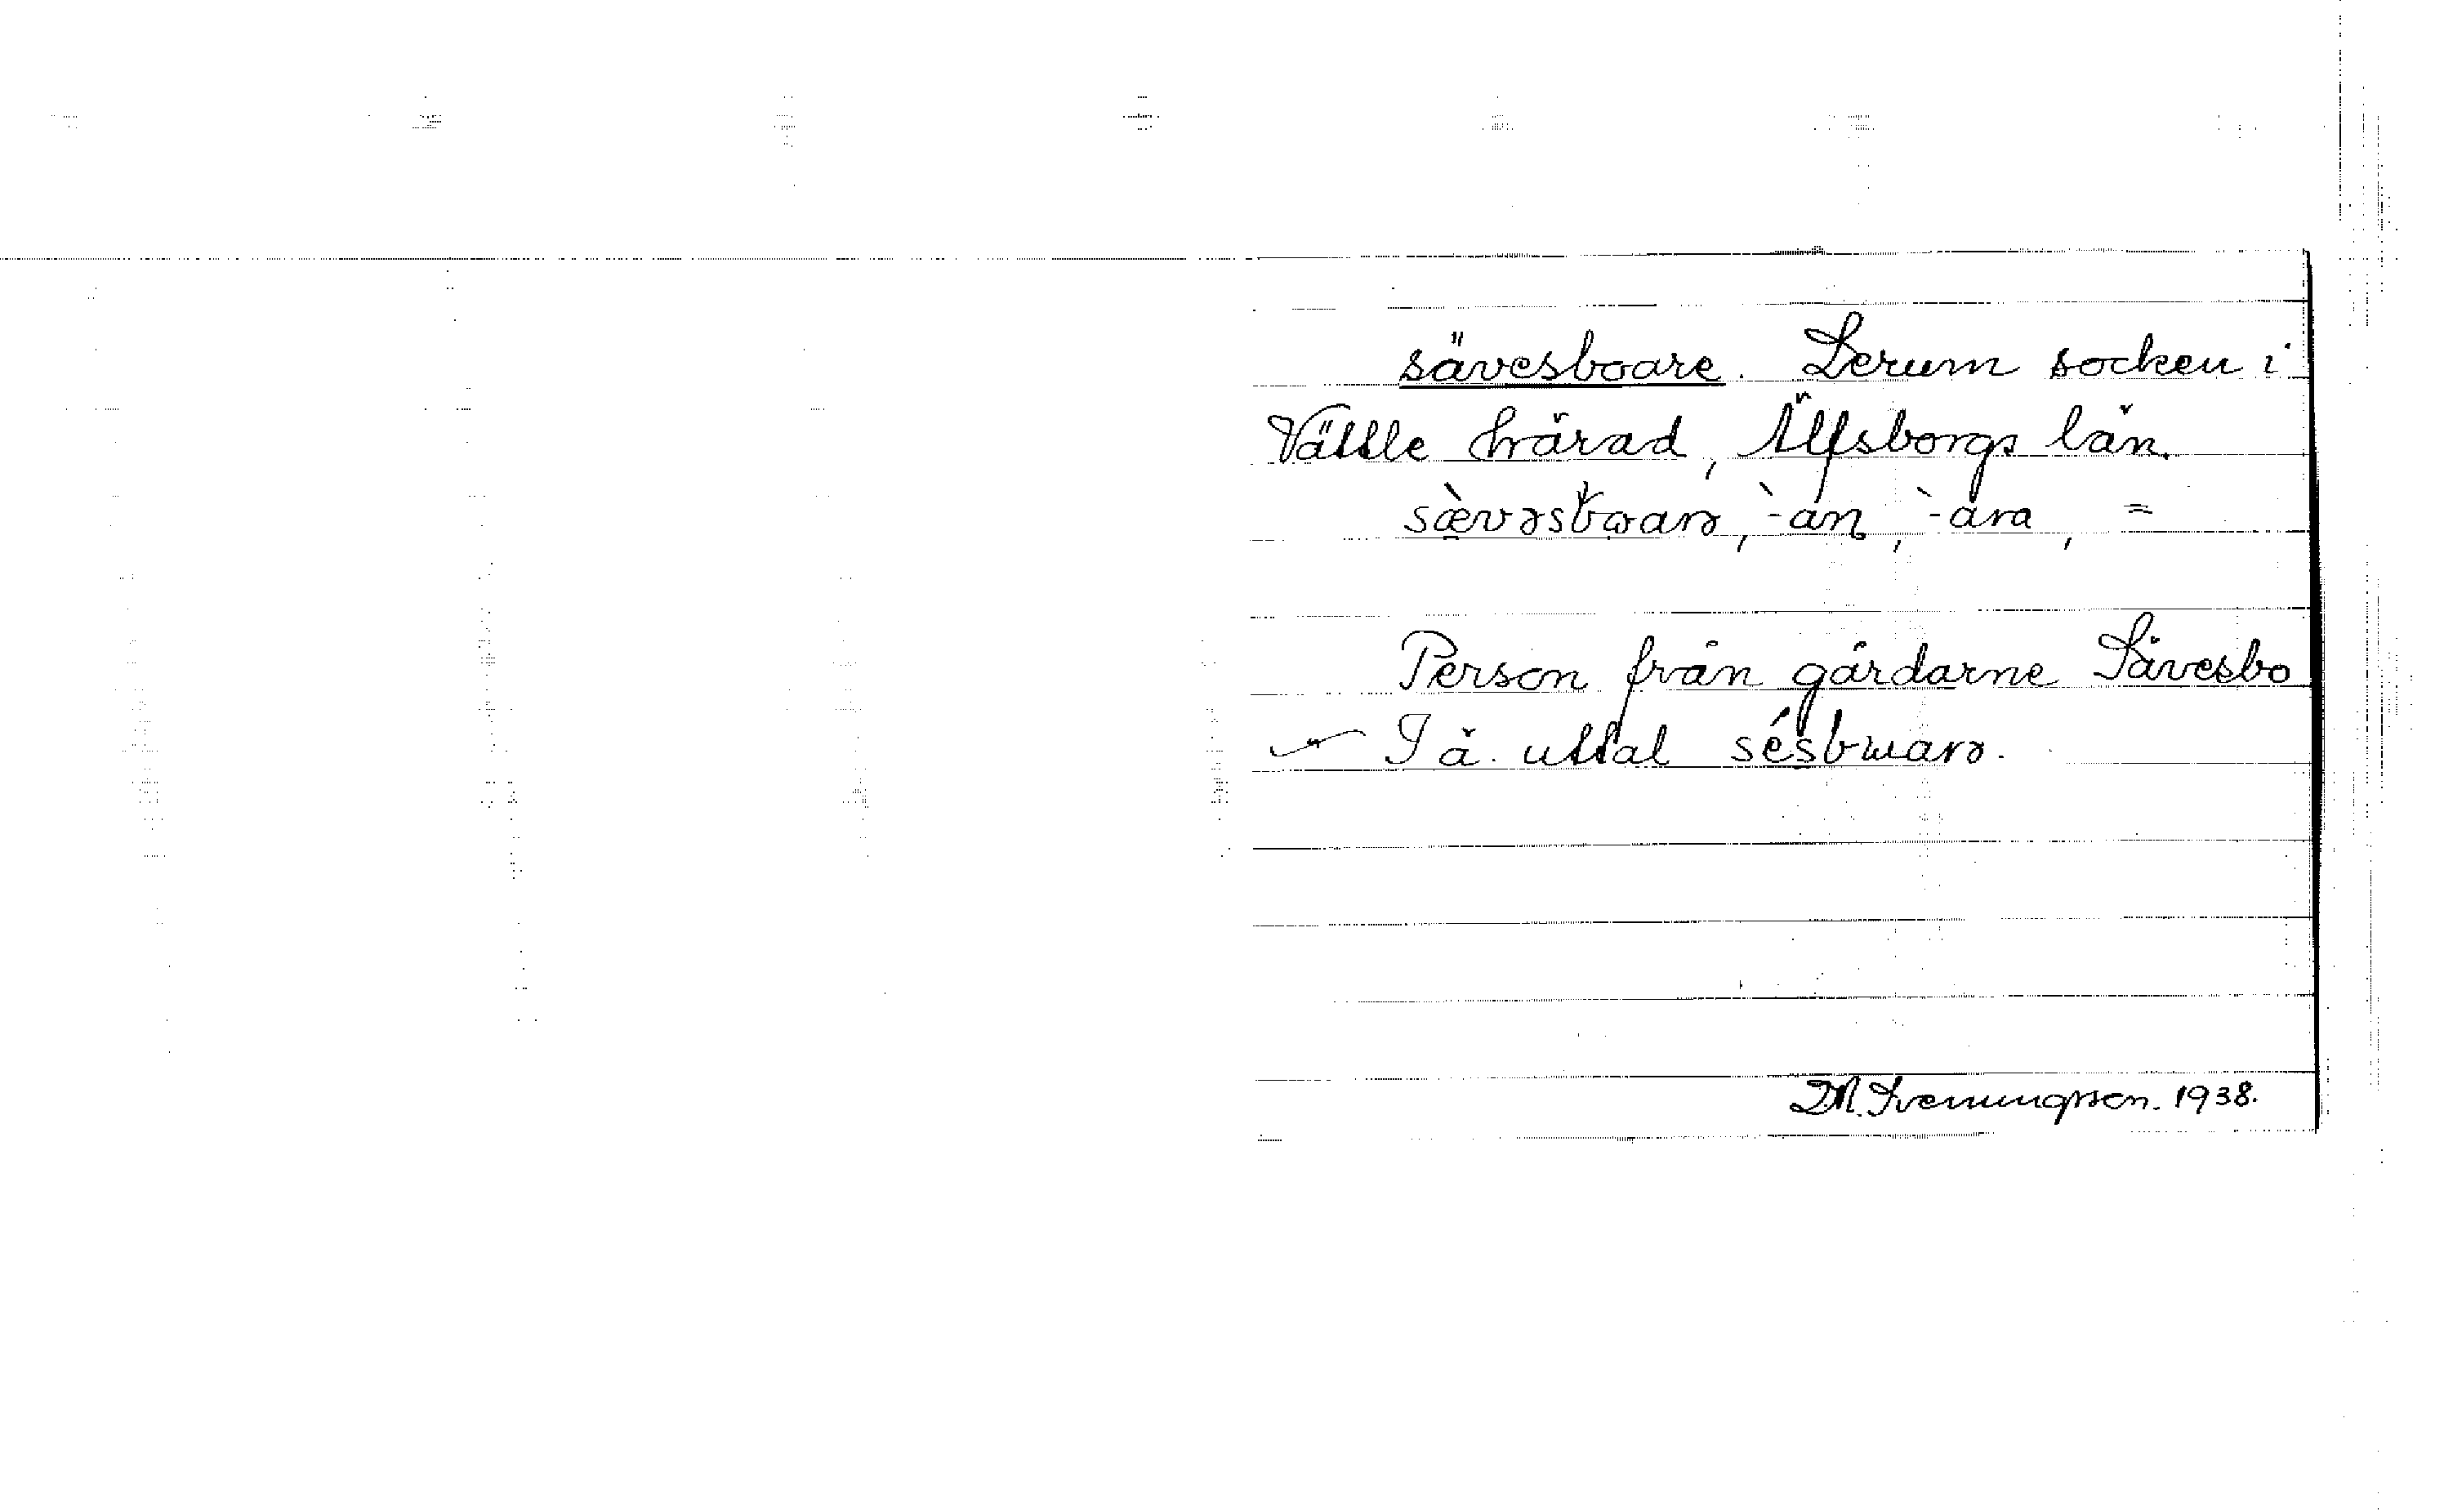 sävesboare. Lerum socken i
Vättle härad, Älfsborgs län.
sæ̀vəsbωarə, -̀an, -̀ara, =
Person från gårdarne Sävesbo
I ä. uttal sésbωarə.
D.N. Svenungsson. 1938.